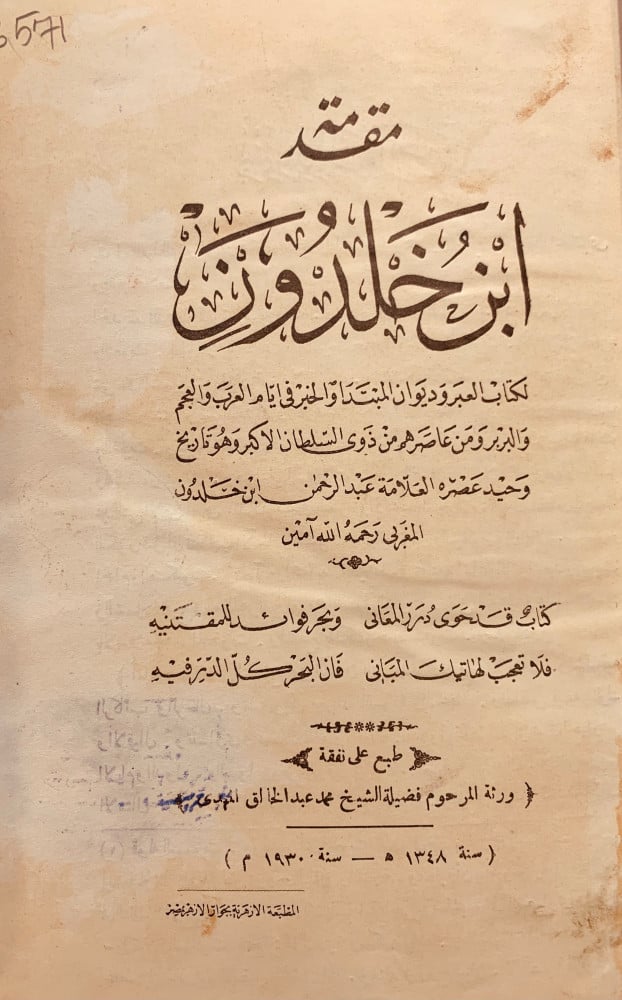 6571
مقدمة
ابن خلدون
لكتاب العبر وديوان المبتدا والخبر في ايام العرب والعجم
والبربر ومن عاصرهم من ذوى السلطان الاكبر وهو تاريخ
وحيد عصره العلامة عبد الرحمن ابن خلدون
المغربى رحمه الله آمين
كتاب قد حوى درر المعانى وبحر فوائد للمقتنيه
فلا تعجب لهاتيك المبانى فان البحر كل الدر فيه
طبع على نفقة
( ورثة المرحوم فضيلة الشيخ محمد عبد الخالق المهدى )
( سنة ١٣٤٨ ه — سنة ١٩٣٠ م )
المطبعة الازهرية بجوار الازهر بمصر